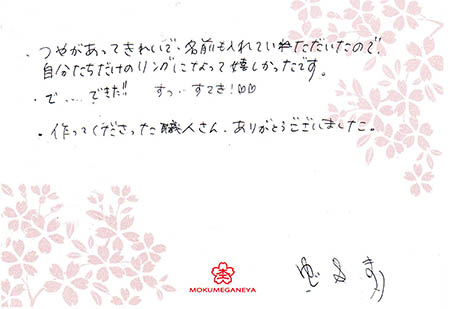 ・つやがあってきれいで、名前も入れていただいたので、
自分たちだけのリングになって嬉しかったです。
・で…できた!! すっ…すてき!♡♡
・作ってくださった職人さん、ありがとうございました。
MOKUMEGANEYA